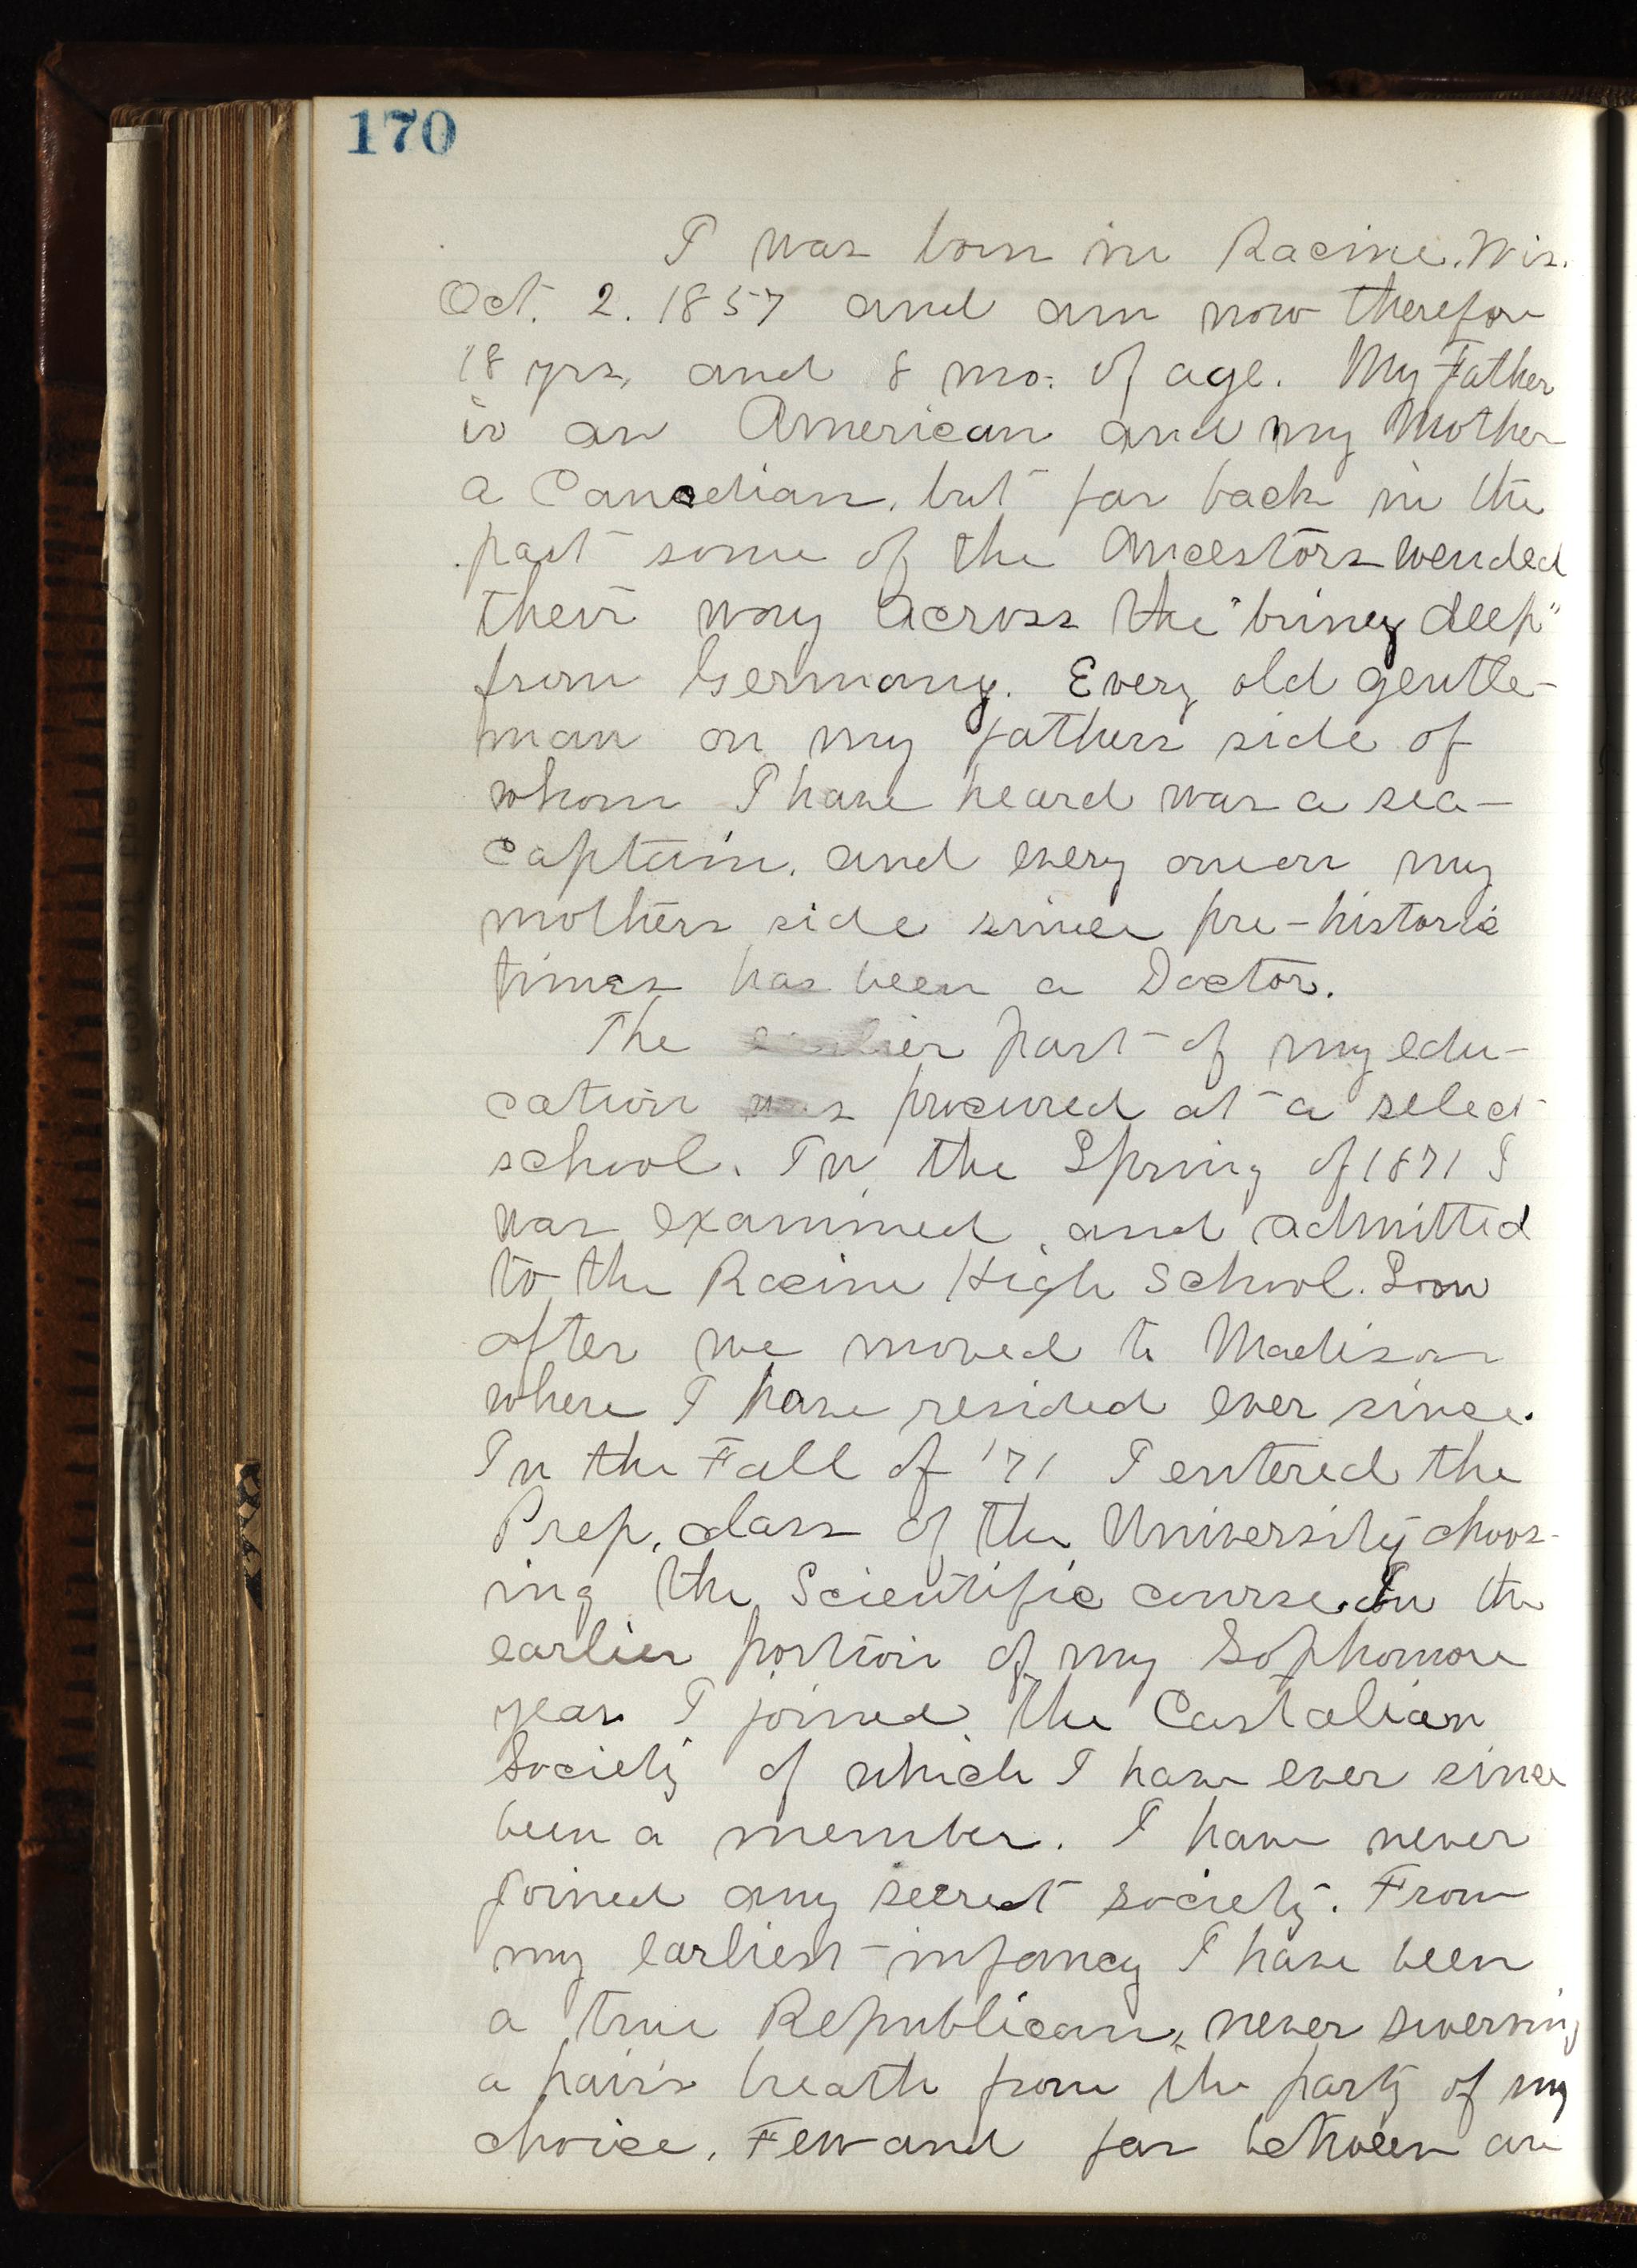 170
I was born in Racine. Wis.
Oct. 2. 1857 and am now therefore
18 yrs. and 8 mo. of age. My Father
is an American and my Mother
a Canadian, but far back in the
past some of the Ancestors wended
their way across the "briney deep"
from Germany. Every old gentle-
man on my fathers side of
whom I have heard was a sea-
captain, and every one on my
mothers side since pre-historic
times has been a Doctor.
The earlier part of my edu-
cation was procured at a select
school. In the Spring of 1871 I
was examined and admitted
to the Racine High School. Soon
after we moved to Madison
where I have resided ever since.
In the Fall of '71 I entered the
Prep. class of the University choos-
ing the Scientific course. In the
earlier portion of my Sophomore
year I joined the Castalian
Society of which I have ever since
been a member. I have never
joined any secret society. From
my earliest infancy I have been
a true Republican, never swerving
a hair's breath from the party of my
choice. Few and far between are